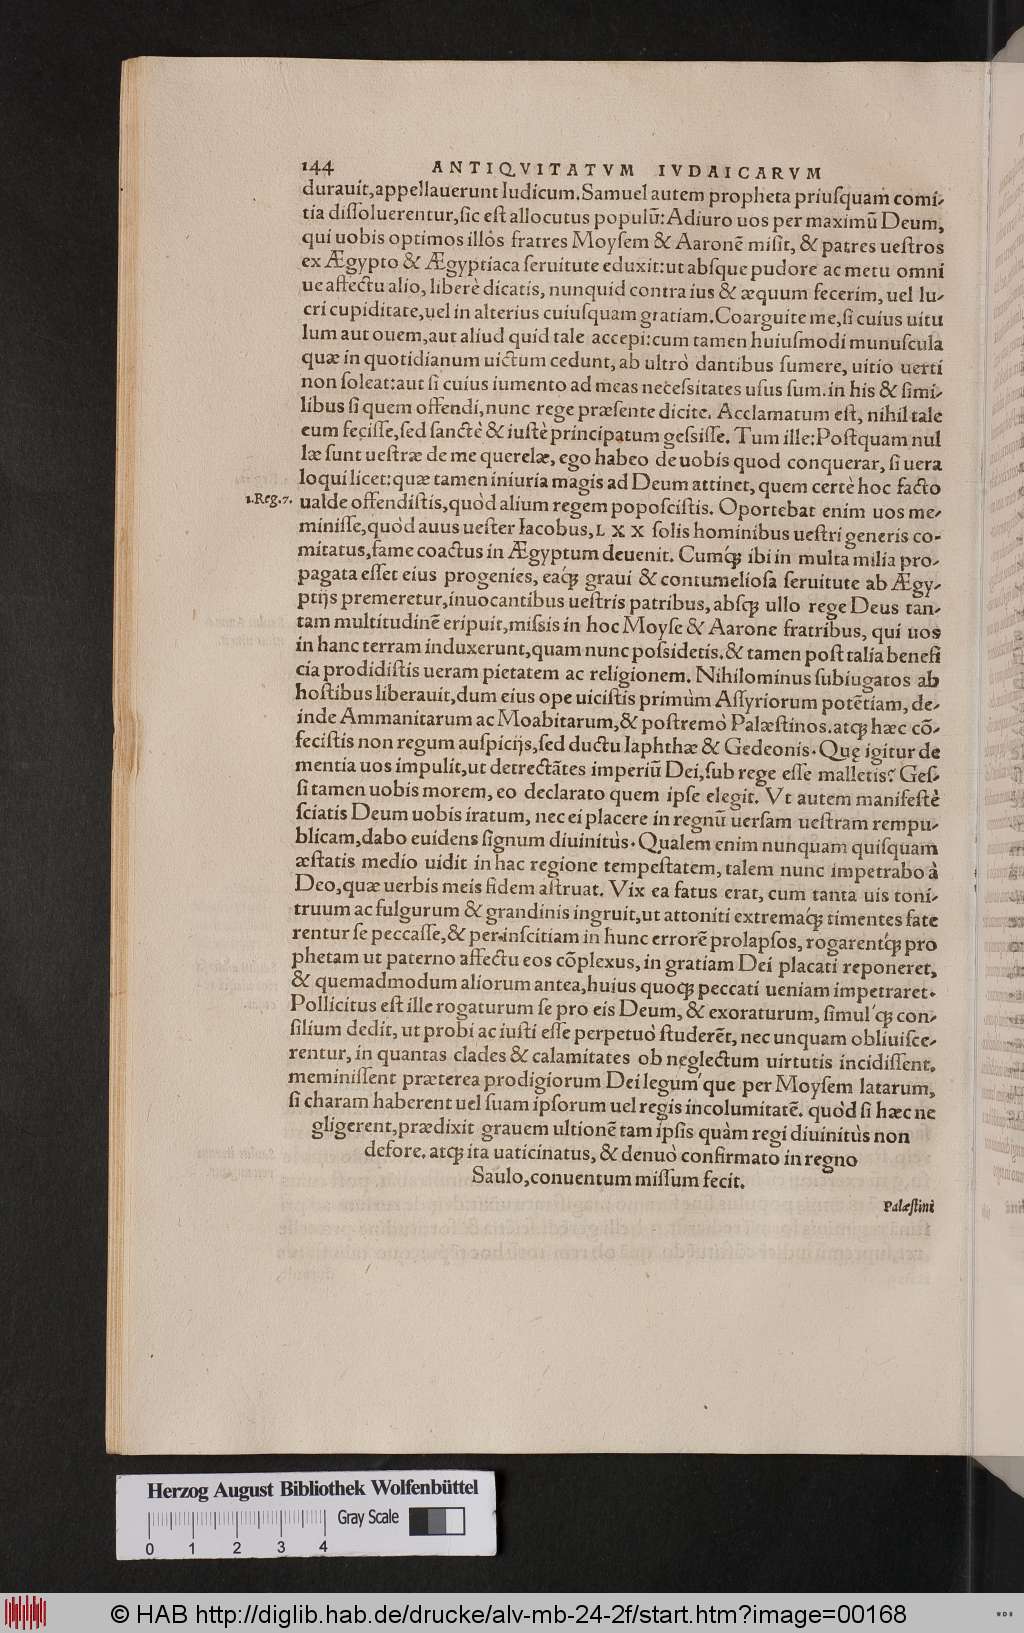 144 ANTIQVITATVM IVDAICARVM
durauit,appellauerunt Iudicum.Samuel autem propheta priuſquam comi-
tia diſſoluerentur,ſic eſt allocutus populū:Adiuro uos per maximū Deum,
qui uobis optimos illos fratres Moyſem & Aaronē miſit, & patres ueſtros
ex Ægypto & Ægyptiaca ſeruitute eduxit:ut abſque pudore ac metu omni
ue affectu alio, liberè dicatis, nunquid contra ius & æquum fecerim, uel lu-
cri cupiditate,uel in alterius cuiuſquam gratiam.Coarguite me,ſi cuius uitu
lum aut ouem,aut aliud quid tale accepi:cum tamen huiuſmodi munuſcula
quæ in quotidianum uictum cedunt, ab ultrò dantibus ſumere, uitio uerti
non ſoleat:aut ſi cuius iumento ad meas neceſsitates uſus ſum.in his & ſimi-
libus ſi quem offendi,nunc rege præſente dicite. Acclamatum eſt, nihil tale
eum feciſſe,ſed ſanctè & iuſtè principatum geſsiſſe. Tum ille:Poſtquam nul
læ ſunt ueſtræ de me querelæ, ego habeo de uobis quod conquerar, ſi uera
loqui licet:quæ tamen iniuria magis ad Deum attinet, quem certè hoc facto
1.Reg.7. ualde offendiſtis,quòd alium regem popoſciſtis. Oportebat enim uos me-
miniſſe,quòd auus ueſter Iacobus, L X X ſolis hominibus ueſtri generis co-
mitatus,fame coactus in Ægyptum deuenit. Cumq́ꝫ ibi in multa milia pro-
pagata eſſet eius progenies, eaq́ꝫ graui & contumelioſa ſeruitute ab Ægy-
ptijs premeretur,inuocantibus ueſtris patribus, abſqꝫ ullo rege Deus tan-
tam multitudinē eripuit,miſsis in hoc Moyſe & Aarone fratribus, qui uos
in hanc terram induxerunt,quam nunc poſsidetis.& tamen poſt talia benefi
cia prodidiſtis ueram pietatem ac religionem. Nihilominus ſubiugatos ab
hoſtibus liberauit,dum eius ope uiciſtis primùm Aſſyriorum potētiam, de-
inde Ammanitarum ac Moabitarum,& poſtremò Palæſtinos.atqꝫ hæc cō-
feciſtis non regum auſpicijs,ſed ductu Iaphthæ & Gedeonis. Quę igitur de
mentia uos impulit,ut detrectātes imperiū Dei,ſub rege eſſe malletis? Geſ-
ſi tamen uobis morem, eo declarato quem ipſe elegit. Vt autem manifeſtè
ſciatis Deum uobis iratum, nec ei placere in regnū uerſam ueſtram rempu-
blicam,dabo euidens ſignum diuinitùs. Qualem enim nunquam quiſquam
æſtatis medio uidit in hac regione tempeſtatem, talem nunc impetrabo à
Deo,quæ uerbis meis fidem aſtruat. Vix ea fatus erat, cum tanta uis toni-
truum ac fulgurum & grandinis ingruit,ut attoniti extremaq́ꝫ timentes fate
rentur ſe peccaſſe,& per inſcitiam in hunc errorē prolapſos, rogarentq́ꝫ pro
phetam ut paterno affectu eos cōplexus, in gratiam Dei placati reponeret,
& quemadmodum aliorum antea,huius quoqꝫ peccati ueniam impetraret.
Pollicitus eſt ille rogaturum ſe pro eis Deum, & exoraturum, ſimul q́ꝫ con-
ſilium dedit, ut probi ac iuſti eſſe perpetuò ſtuderēt, nec unquam obliuiſce-
rentur, in quantas clades & calamitates ob neglectum uirtutis incidiſſent,
meminiſſent præterea prodigiorum Dei leguḿ que per Moyſem latarum,
ſi charam haberent uel ſuam ipſorum uel regis incolumitatē. quòd ſi hæc ne
gligerent,prædixit grauem ultionē tam ipſis quàm regi diuinitùs non
defore. atqꝫ ita uaticinatus, & denuò confirmato in regno
Saulo,conuentum miſſum fecit.
Palæſtini
Herzog August Bibliothek Wolfenbüttel
Gray Scale
0 1 2 3 4
© HAB http://diglib.hab.de/drucke/alv-mb-24-2f/start.htm?image=00168